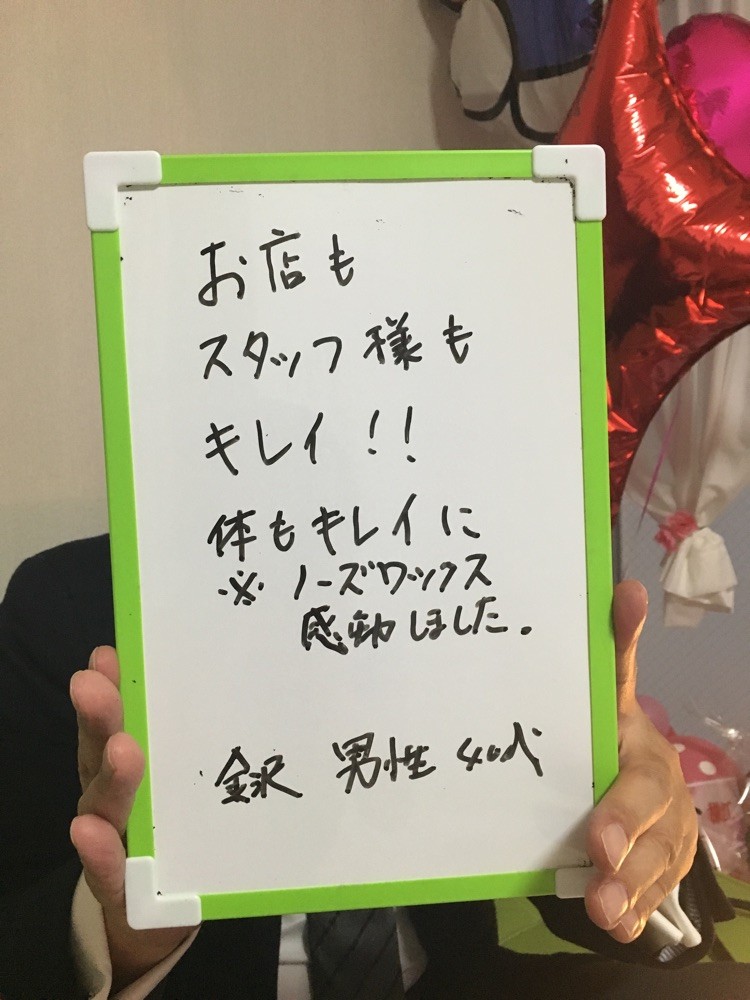 お店も
スタッフ様も
キレイ!!
体もキレイに
※ ノーズワックス
感動しました。
金沢 男性 40代